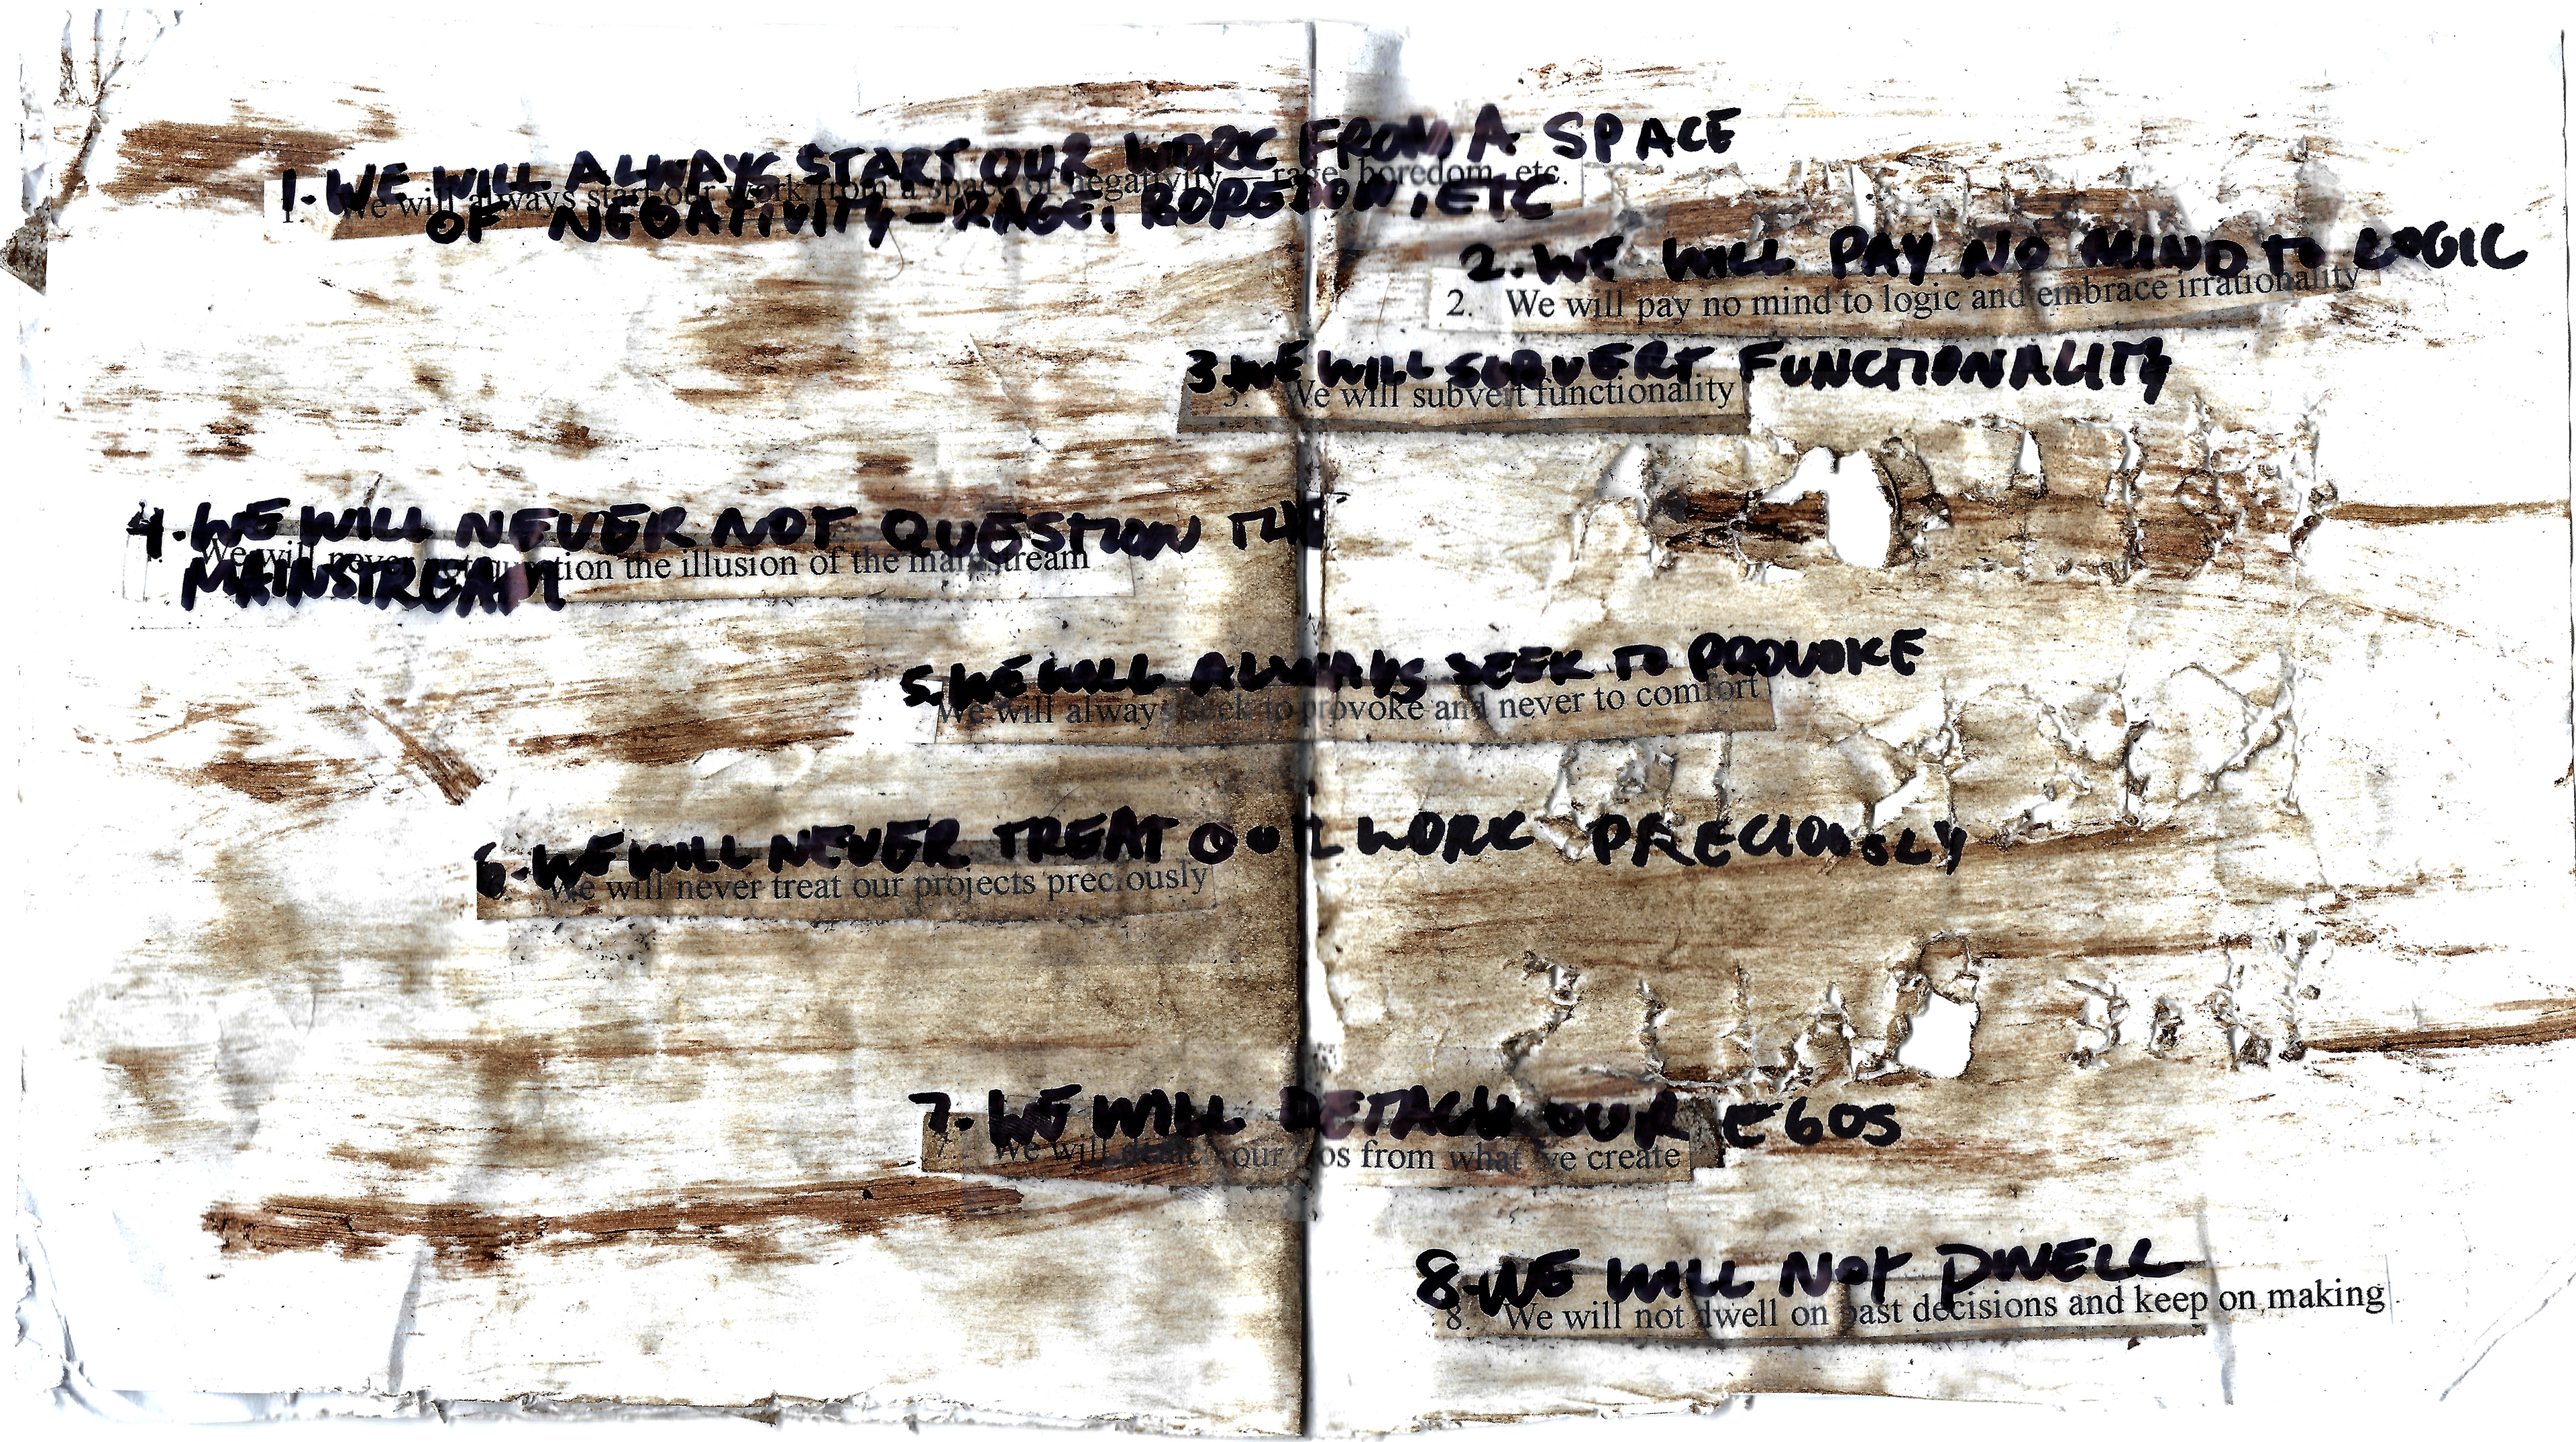 1. WE WILL ALWAYS START OUR WORK FROM A SPACE
1. We will always start our work from a space of negativity – rage, boredom, etc.
OF NEGATIVITY – RAGE, BOREDOM, ETC
2. WE WILL PAY NO MIND TO LOGIC
2. We will pay no mind to logic and embrace irrationality
3. WE WILL SUBVERT FUNCTIONALITY
3. We will subvert functionality
4. WE WILL NEVER NOT QUESTION THE
We will never not question the illusion of the mainstream
MAINSTREAM
5. WE WILL ALWAYS SEEK TO PROVOKE
We will always seek to provoke and never to comfort
6. WE WILL NEVER TREAT OUR WORK PRECIOUSLY
We will never treat our projects preciously
7. WE WILL DETACH OUR EGOS
7. We will detach our egos from what we create
8. WE WILL NOT DWELL
8. We will not dwell on past decisions and keep on making